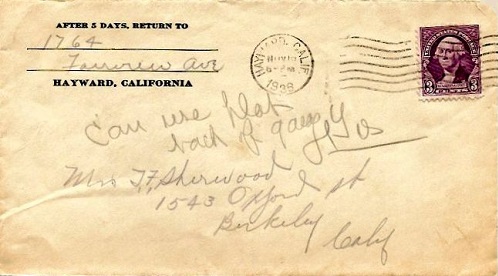 AFTER 5 DAYS, RETURN TO
1764
Ave
HAYWARD, CALIFORNIA
HAYWARD, CALIF
NOV
6-PM
1938
UNITED STATES POSTAGE
3 3
Can we
back of Yes
Mrs T. F. Sherwood
1543 Oxford st
Berkeley
Calif